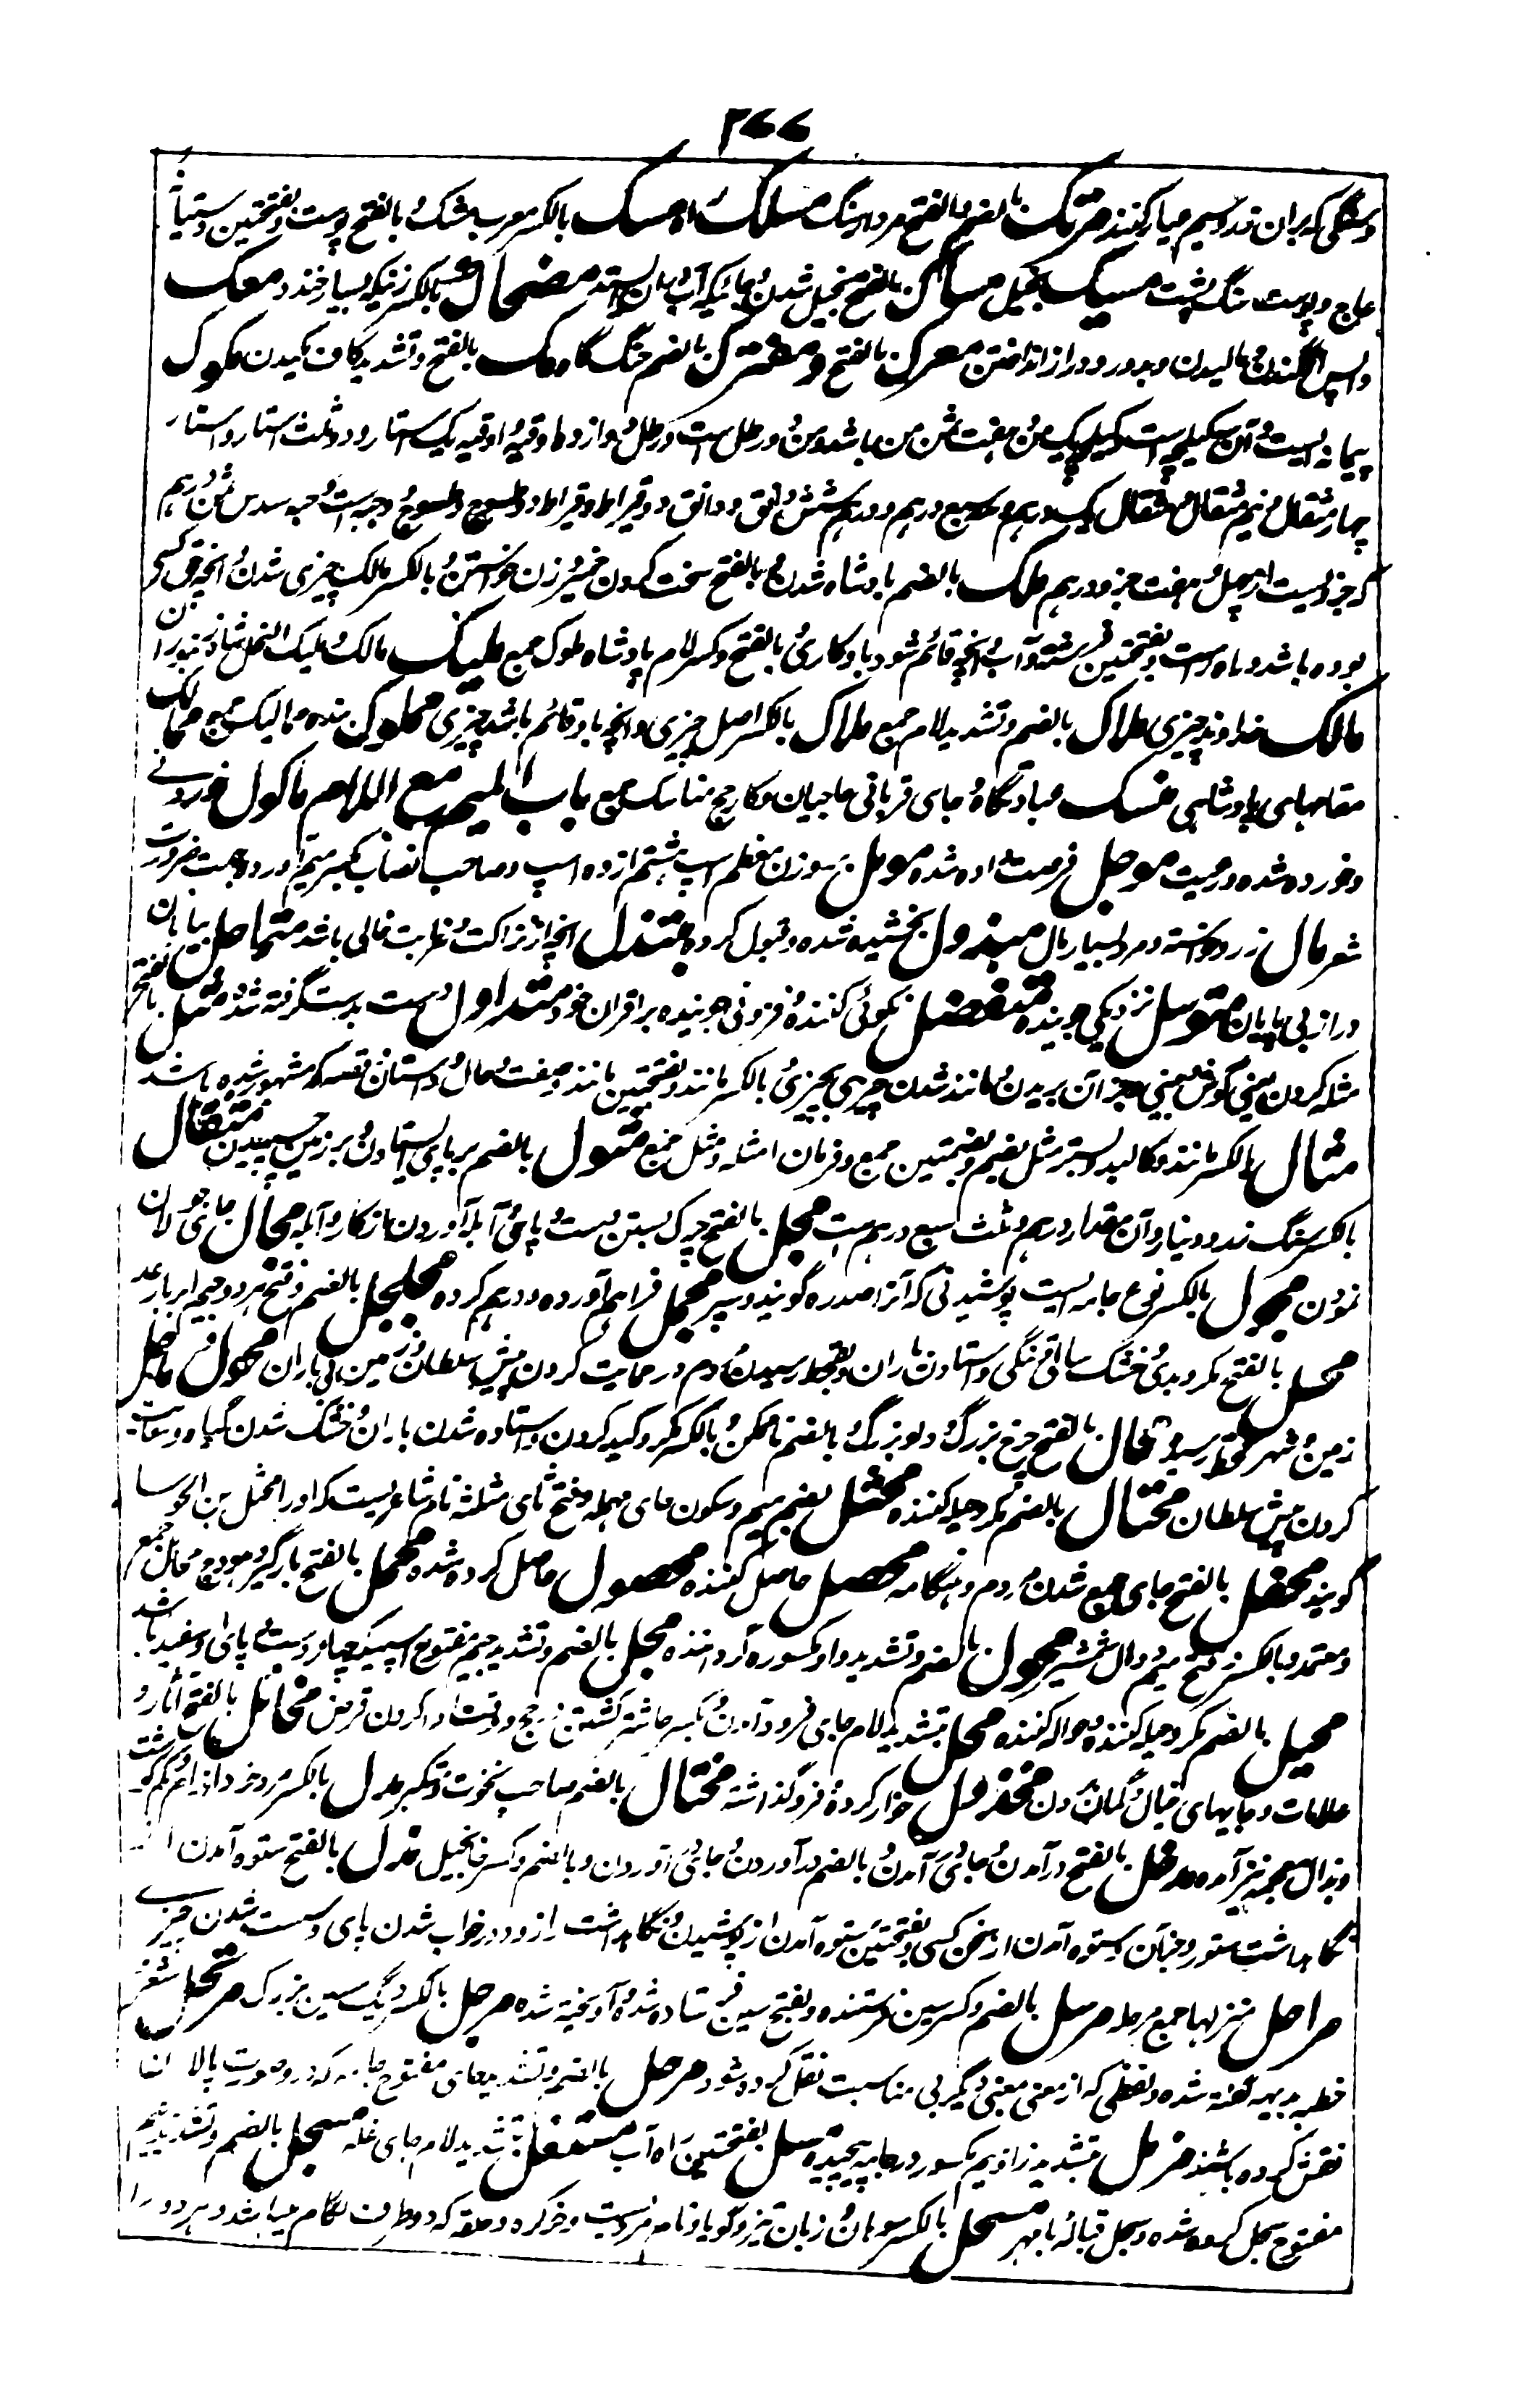 ۲۷۷
وسنگی که بران زر و سیم عیار کنند مرتک بالضم و بالفتح مردارسنگ مسلک راه مسک بالکسر معرب مشک و بالفتح پوست و بفتحتین دستیانه
عاج و پوست سنگ پشت مسیک بخیل مساک بالفتح بخیل شدن و جائیکه آب دران بایستد مضحاک بالکسر زنیکه بسیار خندد معک
مالیدن و بدور و دراز انداختن معرک بالفتح و معترک بالضم جنگ گاه مک بالفتح و تشدید کاف مکیدن مکوک
پیمانه ایست و آن سه کیلجه است و کیلجه یک من و هفت ثمن من باشد و من دو رطل است و رطل دوازده اوقیه و اوقیه یک استار و دو ثلث استار و استار
چهار مثقال و نیم مثقال و مثقال یک درهم و سه سبع درهم و درهم شش دانق و دانق دو قیراط و قیراط دو طسوج و طسوج دو حبه است و حبه سدس ثمن درهم
که جزویست از چهل و هشت جزو درهم ملک بالضم پادشاه شدن و بالفتح سخت کردن خمیر و زن خواستن و بالکسر مالک چیزی شدن و آنچه در حق کسی
بوده باشد و ماه است و بفتحتین فرشته و آب و آنچه قائم شود باو کاری و بالفتح و کسر لام پادشاه ملوک جمع ملیک مالک و ملیک النحل شاه زنبوران
مالک خداوند چیزی ملاک بالضم و تشدید لام جمع ملاک بالکسر اصل چیزی و آنچه باو قائم باشد چیزی مملوک بنده ممالیک جمع ممالک
مقامهای پادشاهی منسک عبادتگاه و جای قربانی حاجیان و کار حج مناسک جمع باب المیم مع اللام ماکول خوردنی
و خورده شده و رعیت موجل فرصت داده شده مومل بر وزن معظم اسپ هشتم از ده اسپ و صاحب نصاب بکسر میم آورده بجهت ضرورت
شعر مال زر و خواسته و مرد بسیار مال مبذول بخشیده شده و قبول کرده مبتذل آنچه از نزاکت و غرابت خالی باشد متماحل بیابان
دراز بی پایان متوسل نزدیکی جوینده متفضل نکوئی کننده و فزونی جوینده بر اقران خود متداول دست بدست گرفته شده مثل بالفتح
مثله کردن یعنی گوش و بینی و جز آن بریدن و مانند شدن چیزی بچیزی و بالکسر مانند و بفتحتین مانند و صفت و حال و داستان و قصه که مشهور شده باشد
مثال بالکسر مانند و کالبد و بستر مثل بضم و بضمتین جمع و فرمان امثله و مثل جمع مثول بالضم بر پای ایستادن و بر زمین چسپیدن مثقال
بالکسر سنگ زر و دینار و آن مقدار درهم و ثلث سبع درهم است مجل بالفتح چرک بستن دست و پای و آبله آوردن از کار و آبله مجال جای جولان
نمودن مجول بالکسر نوع جامه ایست پوشیدنی که آنرا صدره گویند و سپر مجمل فراهم آورده و درهم کرده مجلجل بالضم و فتح هر دو جیم ابر با رعد
محل بالفتح مکر و بدی و خشک سالی و تنگی و استادن باران و بقحط رسیدن مردم و سعایت کردن پیش سلطان و زمین بی باران محول و ماحل
زمین و شهر قحط رسیده محال بالفتح چرخ بزرگ و دلو بزرگ و بالضم ناممکن و بالکسر مکر و کید کردن و استاده شدن باران و خشک شدن گیاه و سعایت
کردن پیش سلطان محتال بالضم مکر و حیله کننده محثل بضم میم و سکون حای مهمله و فتح ثای مثلثه نام شاعریست که او را محثل بن الحوسا
گویند محفل بالفتح جای جمع شدن مردم و هنگامه محصل حاصل کننده محصول حاصل کرده شده محمل بالفتح بارگیر و هودج محامل جمع
و معتمد و بالکسر و فتح میم دوال شمشیر محول بالضم و تشدید واو مکسوره گرداننده محجل بالضم و تشدید جیم مفتوح اسپیکه چهار دست و پای او سفید باشد
محیل بالضم مکر و حیله کننده و حواله کننده محل بتشدید لام جای فرود آمدن و بکسر حا شتر کشتن در حج و وقت ادا کردن قرض مخائل بالفتح آثار و
علامات و جایهای خیال و گمان بردن مخذول خوار کرده و فروگذاشته مختال بالضم صاحب نخوت و تکبر مدل بالکسر مرد خرد اندام و کم گوشت
و بذال معجمه نیز آمده مدخل بالفتح درآمدن و جای درآمدن و بالضم درآوردن و جای درآوردن و بالضم و کسر خا بخیل مذل بالفتح ستوه آمدن از
نگاهداشت ستور و جز آن و ستوه آمدن از سخن کسی و بفتحتین ستوه آمدن از پوشیدن و نگاهداشت راز و در خواب شدن پای و سست شدن چیزی
مراحل منزلها جمع مرحله مرسل بالضم و کسر سین فرستنده و بفتح سین فرستاده شده و آویخته شده مرجل بالکسر دیگ مسین بزرگ مرتجل شعر و
خطبه بدیهه گفته شده و لفظی که از معنی بمعنی دیگر بی مناسبت نقل کرده شود مرحل بالضم و تشدید حای مفتوح جامه که در و صورت پالان
نقش کرده باشند مزمل بتشدید زا و میم مکسور در جامه پیچیده مسل بفتحتین راه آب مستغل بتشدید لام جای غله مسجل بالضم و تشدید جیم
مفتوح سجل کرده شده و سجل قباله با مهر مسحل بالکسر سوهان و زبان تیز و گویا و نام مردیست و خرکره و حلقه که در دو طرف لگام میباشد و هر دو را